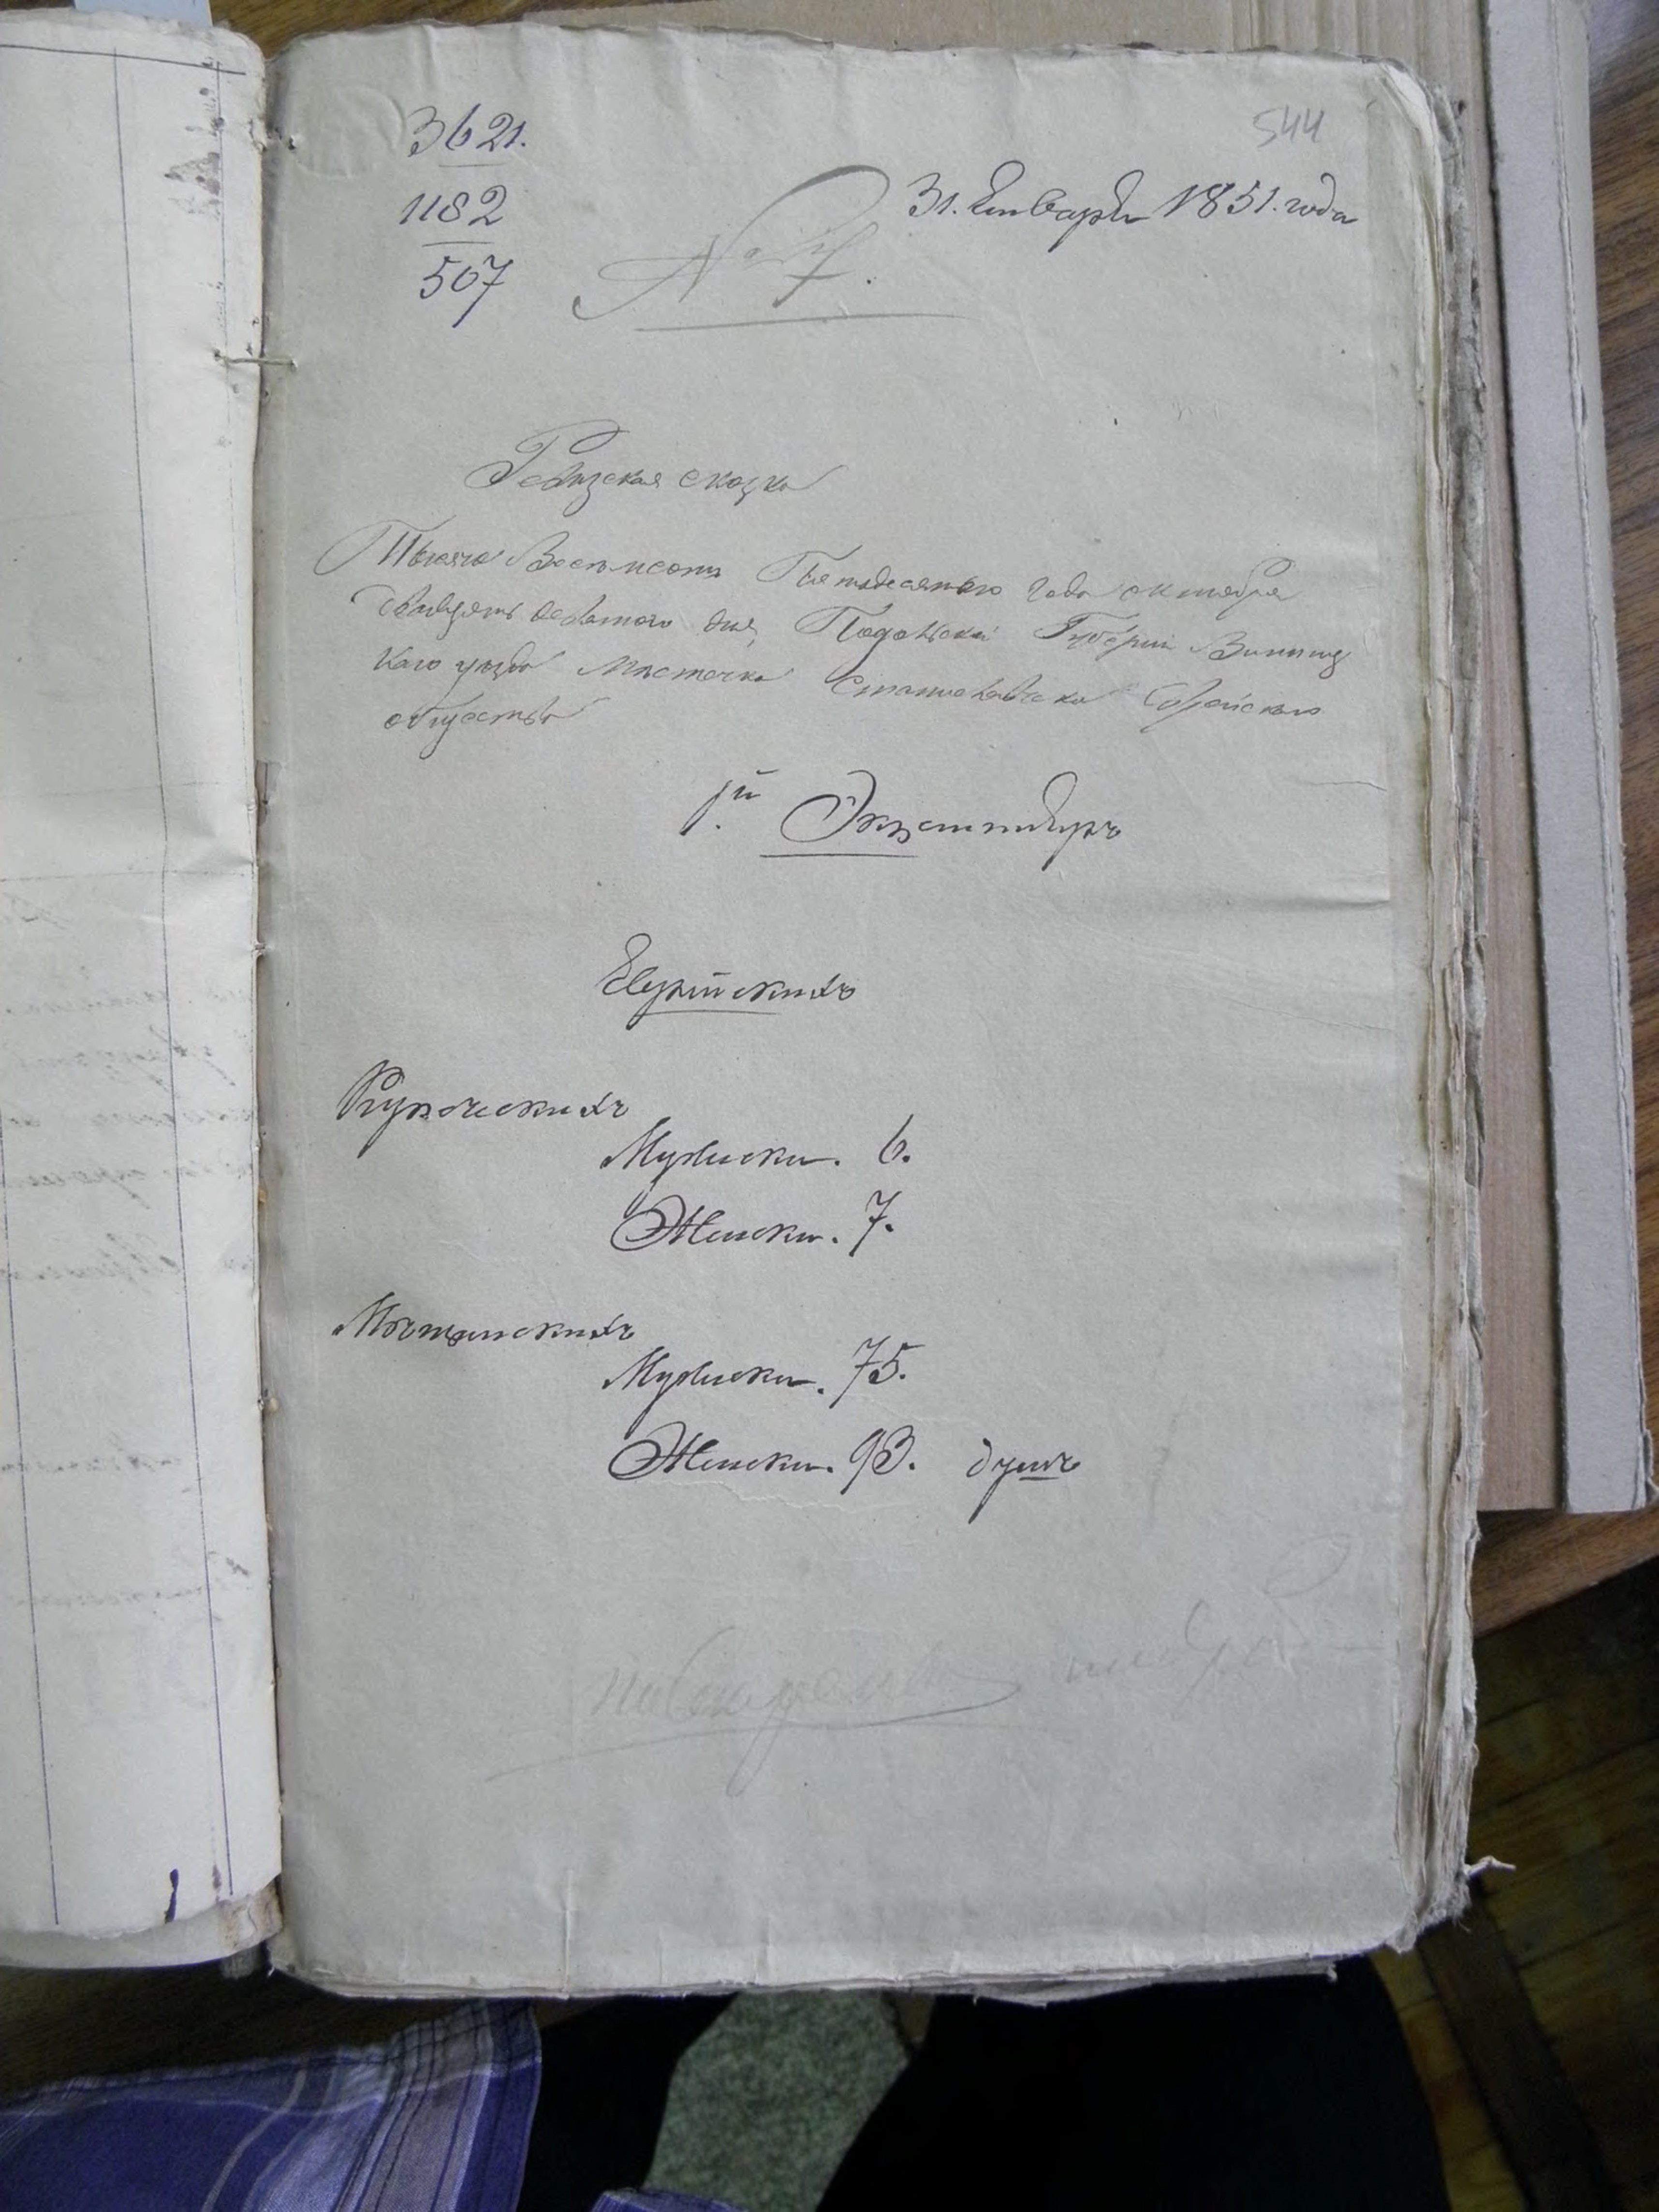 3621.
544
1182
31. Января 1851. года
507
№ 7.
Ревизская сказка
Тысяча Восемсотъ Пятидесятого года октября
двадцять девятого дня, Подольской Губерніи Винниц
каго уезда Местечка Станиславчека Еврейского
общества
1й Экземпляръ
Еврейскихъ
Купеческихъ
Мужеска. 6.
Женска. 7.
Мещанскихъ
Мужеска. 75.
Женска. 93. душъ